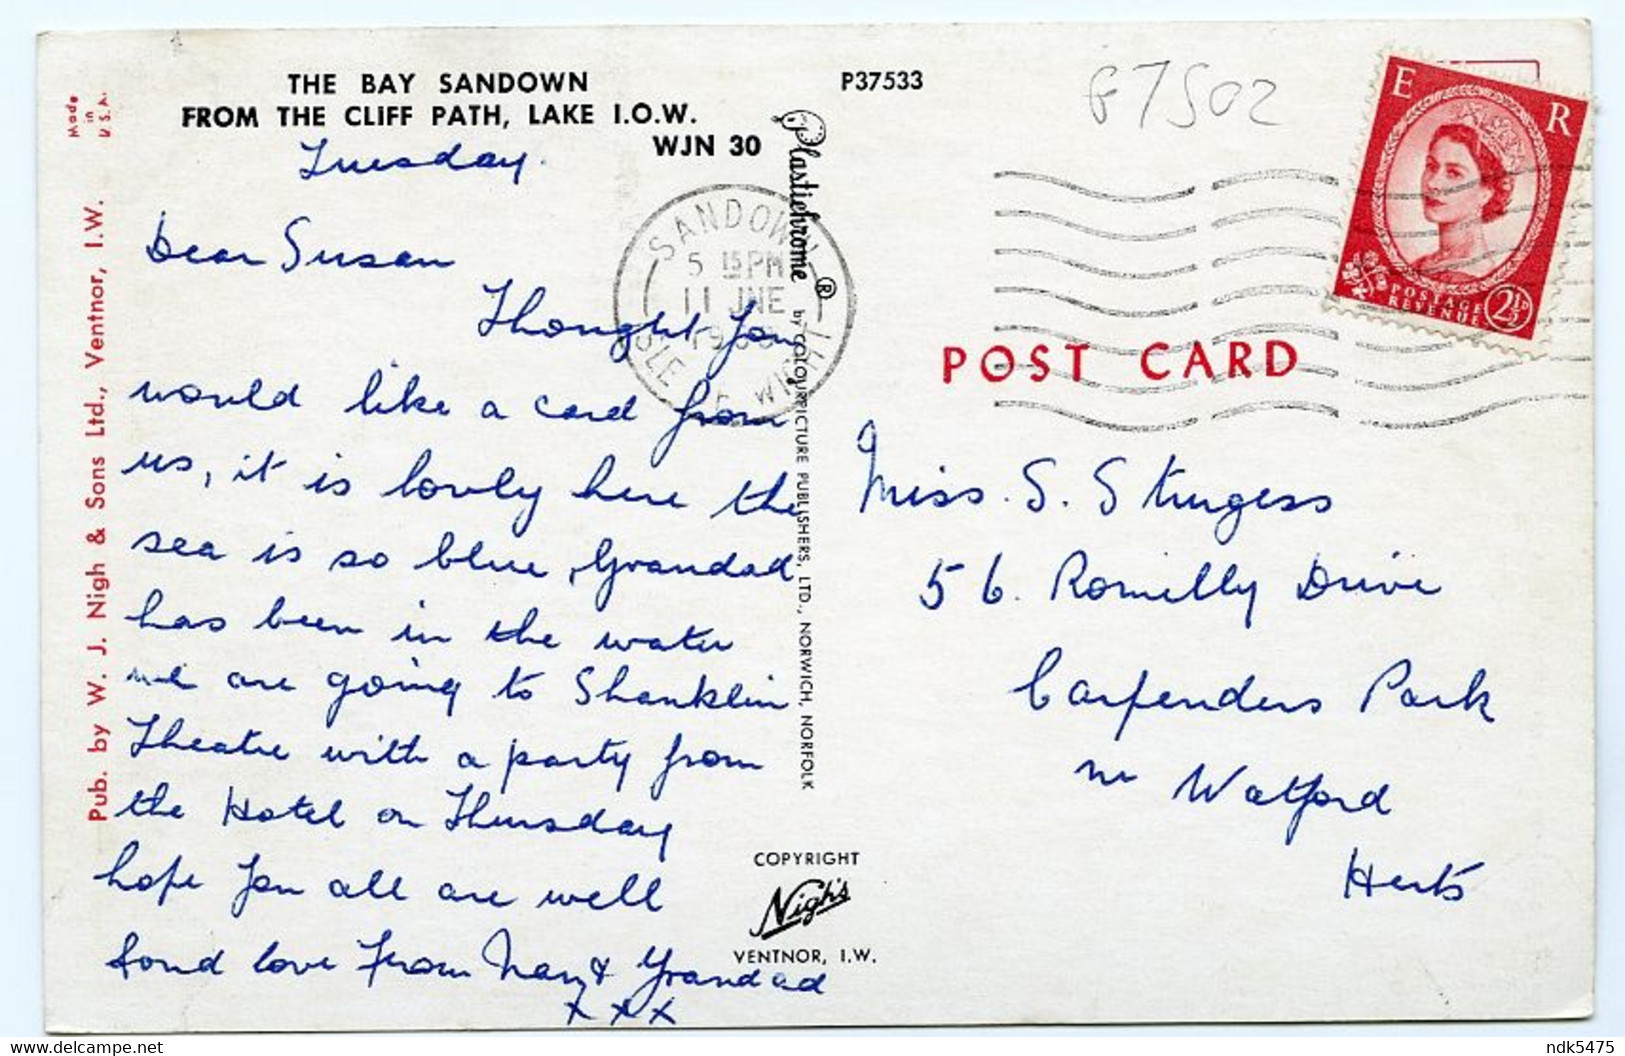 THE BAY SANDOWN
FROM THE CLIFF PATH, LAKE I.O.W.
WJN 30
P37533
Made
in
U.S.A.
Pub. by W. J. Nigh & Sons Ltd., Ventnor, I.W.
Tuesday.
Dear Susan
Thought You
would like a card from
us, it is lovely here the
sea is so blue, Grandad
has been in the water
we are going to Shanklin
Theatre with a party from
the Hotel on Thursday
hope You all are well
fond love From Nan & Grandad
x x x
SANDOWN
5 15 PM
11 JNE
ISLE OF WIGHT
Plastichrome ® by COLOURPICTURE PUBLISHERS, LTD., NORWICH, NORFOLK
COPYRIGHT
Nigh's
VENTNOR, I.W.
E R
POSTAGE
REVENUE
2½D
POST CARD
Miss. S. Sturgess
56. Romilly Drive
Carpenders Park
nr Watford
Herts
ndk5475